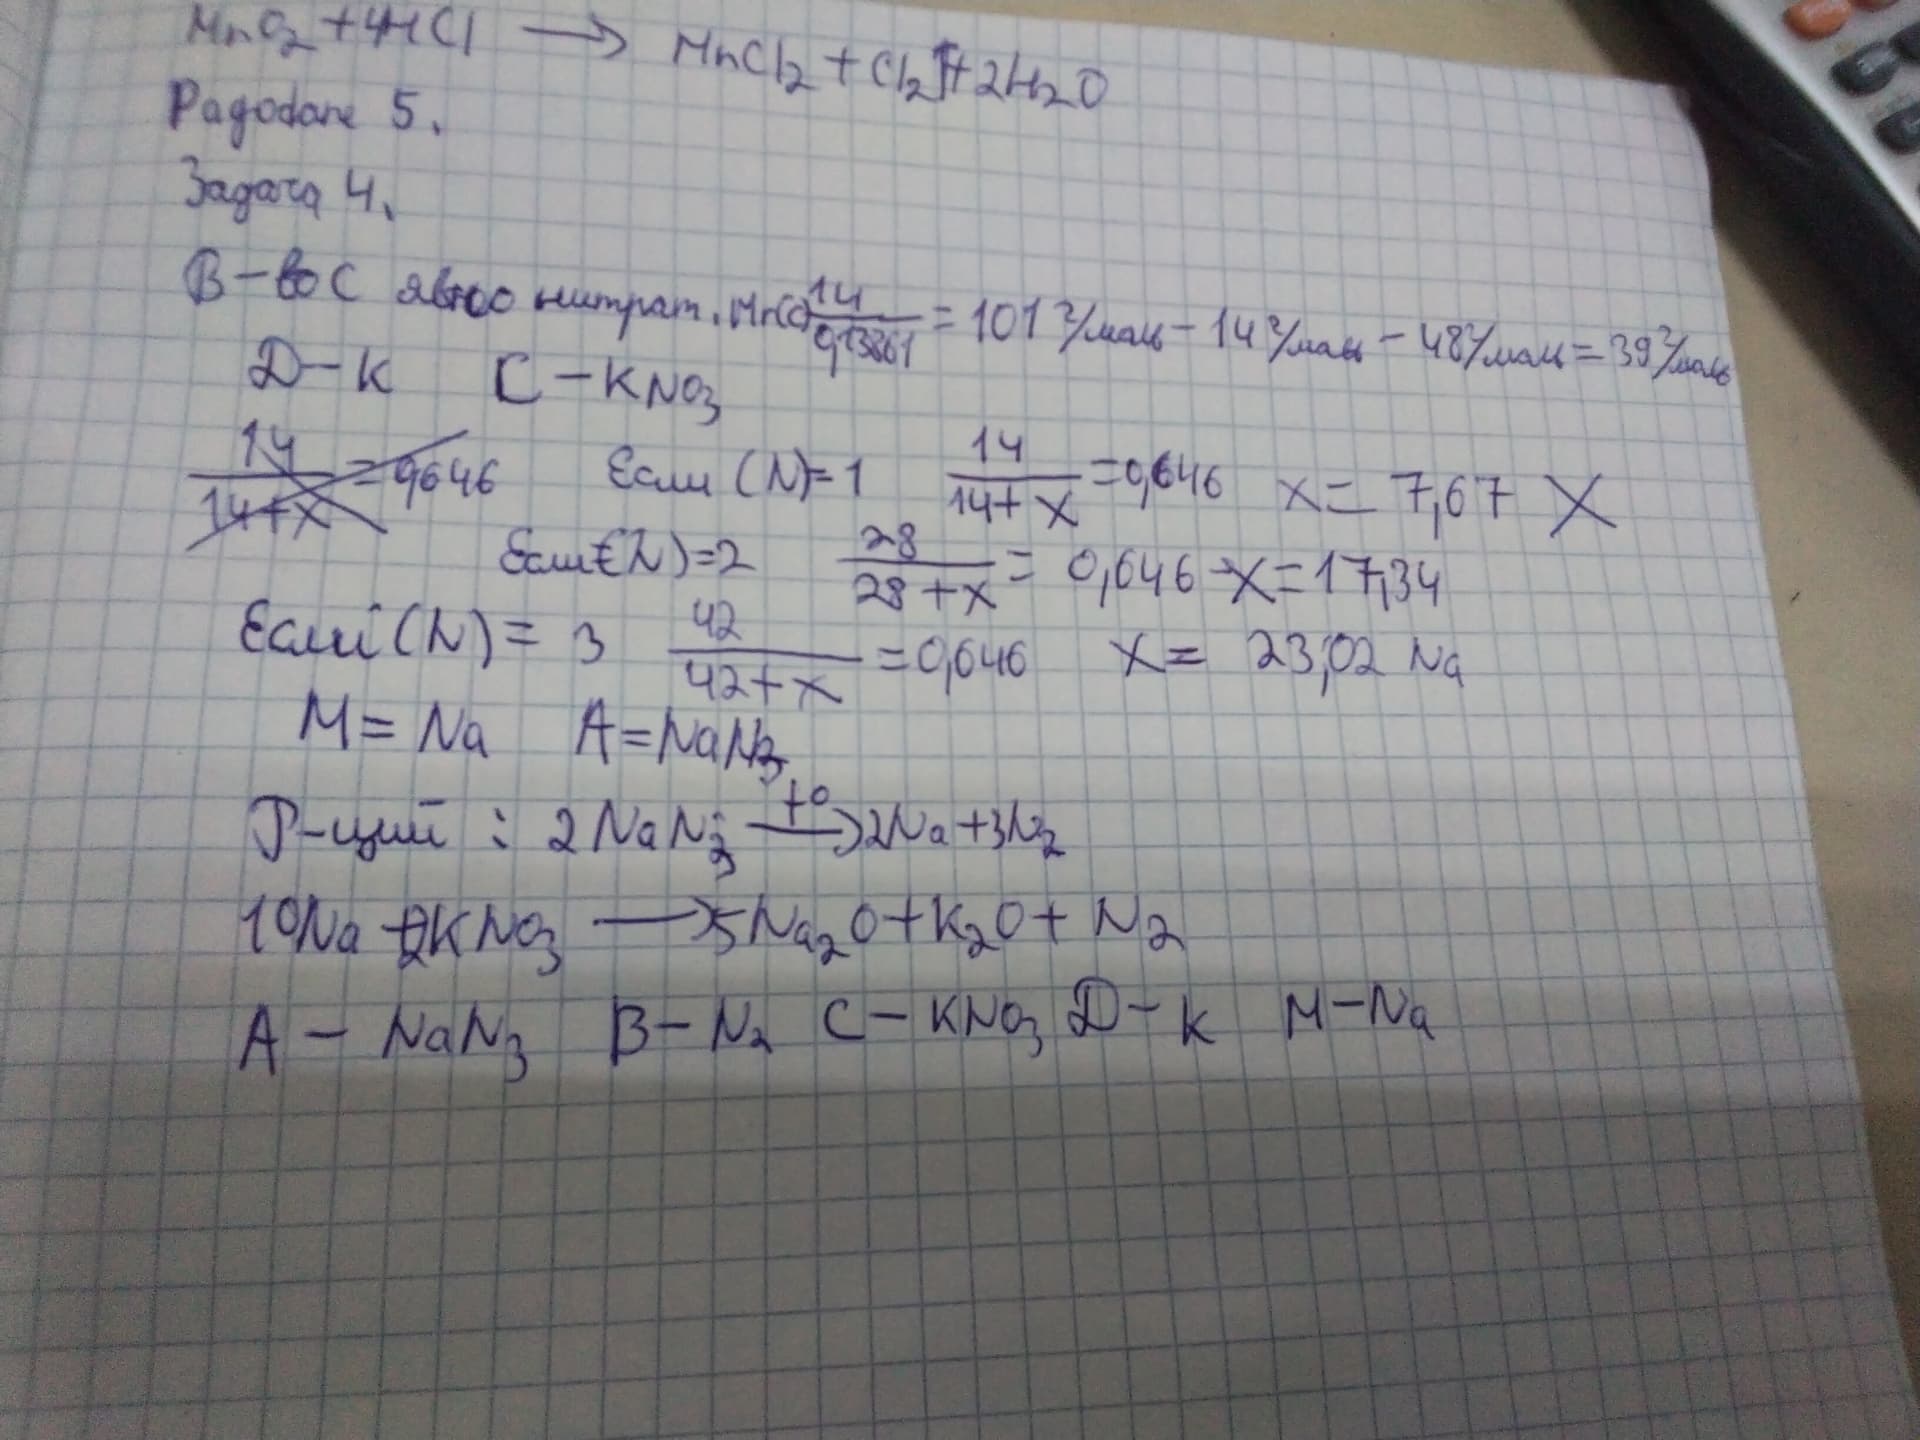 MnO2 + 4HCl → MnCl2 + Cl2↑ + 2H2O
5.
Задача 4.
В-во С явно нитрат. Mr(C) 14/0,13861 = 101 г/моль - 14 г/моль - 48 г/моль = 39 г/моль
D - K C - KNO3
14/(14+x) = 0,646 Если (N)=1 14/(14+x) = 0,646 x = 7,67 X
Если (N)=2 28/(28+x) = 0,646 x = 17,34
Если (N) = 3 42/(42+x) = 0,646 x = 23,02 Na
M = Na A = NaN3
Р-ций : 2NaN3 →t° 2Na + 3N2
10Na + 2KNO3 → 5Na2O + K2O + N2
A - NaN3 B - N2 C - KNO3 D - K M - Na